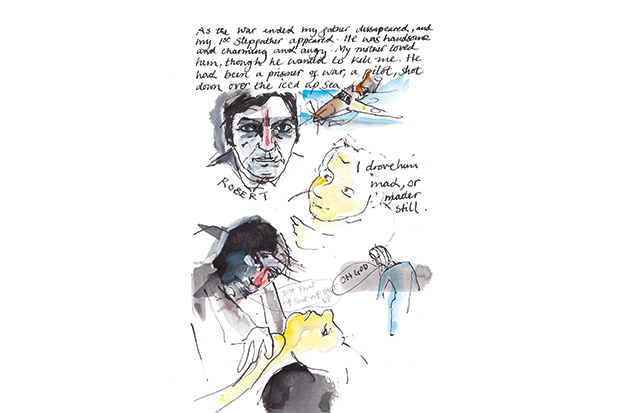 As the war ended my father dissapeared, and
my 1st Stepfather appeared. He was handsome
and charming and angry. My mother loved
him, though he wanted to kill me. He
had been a prisoner of war, a pilot, shot
down over the iced up sea
ROBERT
I drove him
mad, or
mader
still.
OH GOD
just shut
up shut up shut
up